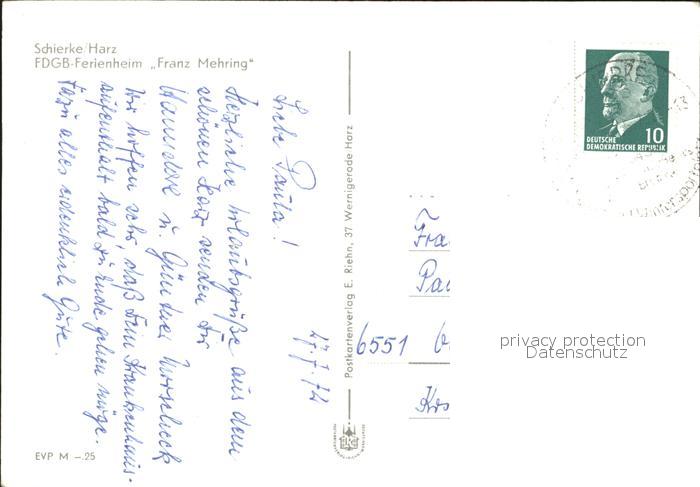 Schierke/Harz
FDGB-Ferienheim „Franz Mehring"
Liebe Paula!
Herzliche Urlaubsgrüße aus dem
schönen Harz senden Dir
Hannelore u. Günther
Wir hoffen sehr, daß Dein Krankenhaus-
aufenthalt bald zu Ende gehen möge.
Dazu alles erdenklich Gute.
17.7.72
EVP M –.25
Postkartenverlag E. Riehn, 37 Wernigerode Harz
DEUTSCHE
DEMOKRATISCHE REPUBLIK
10
Fra
Pau
6551
privacy protection
Datenschutz